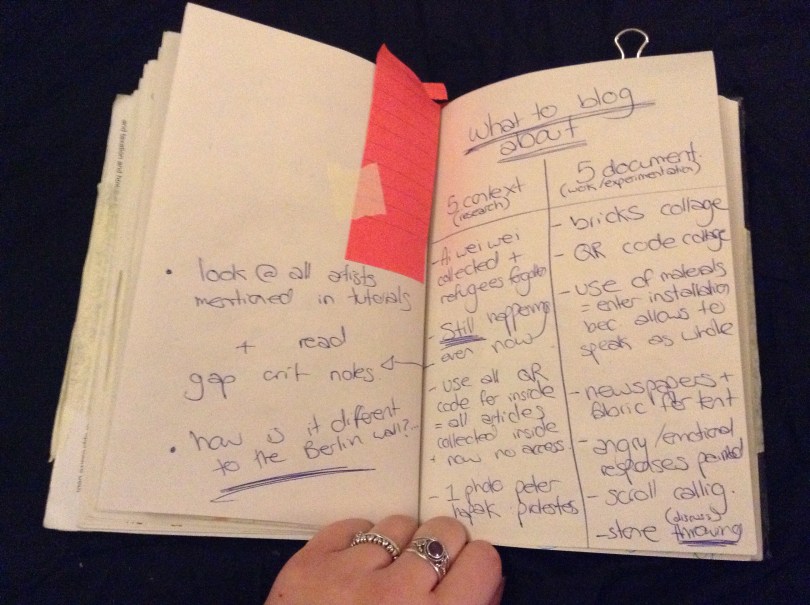 • look @ all atists
mentioned in tutorials
+ read
gap crit notes
• how is it different
to the Berlin wall?
what to blog
about
5 context
(research)
- Ai wei wei
collected +
refugees
- Still happening
even now
- use all QR
code for inside
= all articles
collected inside
+ now no access
- 1 photo peter
hapak protestes
5 document.
(work/experimentation)
- bricks collage
- QR code collage
- use of materials
= enter installation
bec allows to
speak as whole
- newspapers +
fabric for tent
- angry/emotional
responses painted
- scroll callig.
(discuss)
- stone throwing